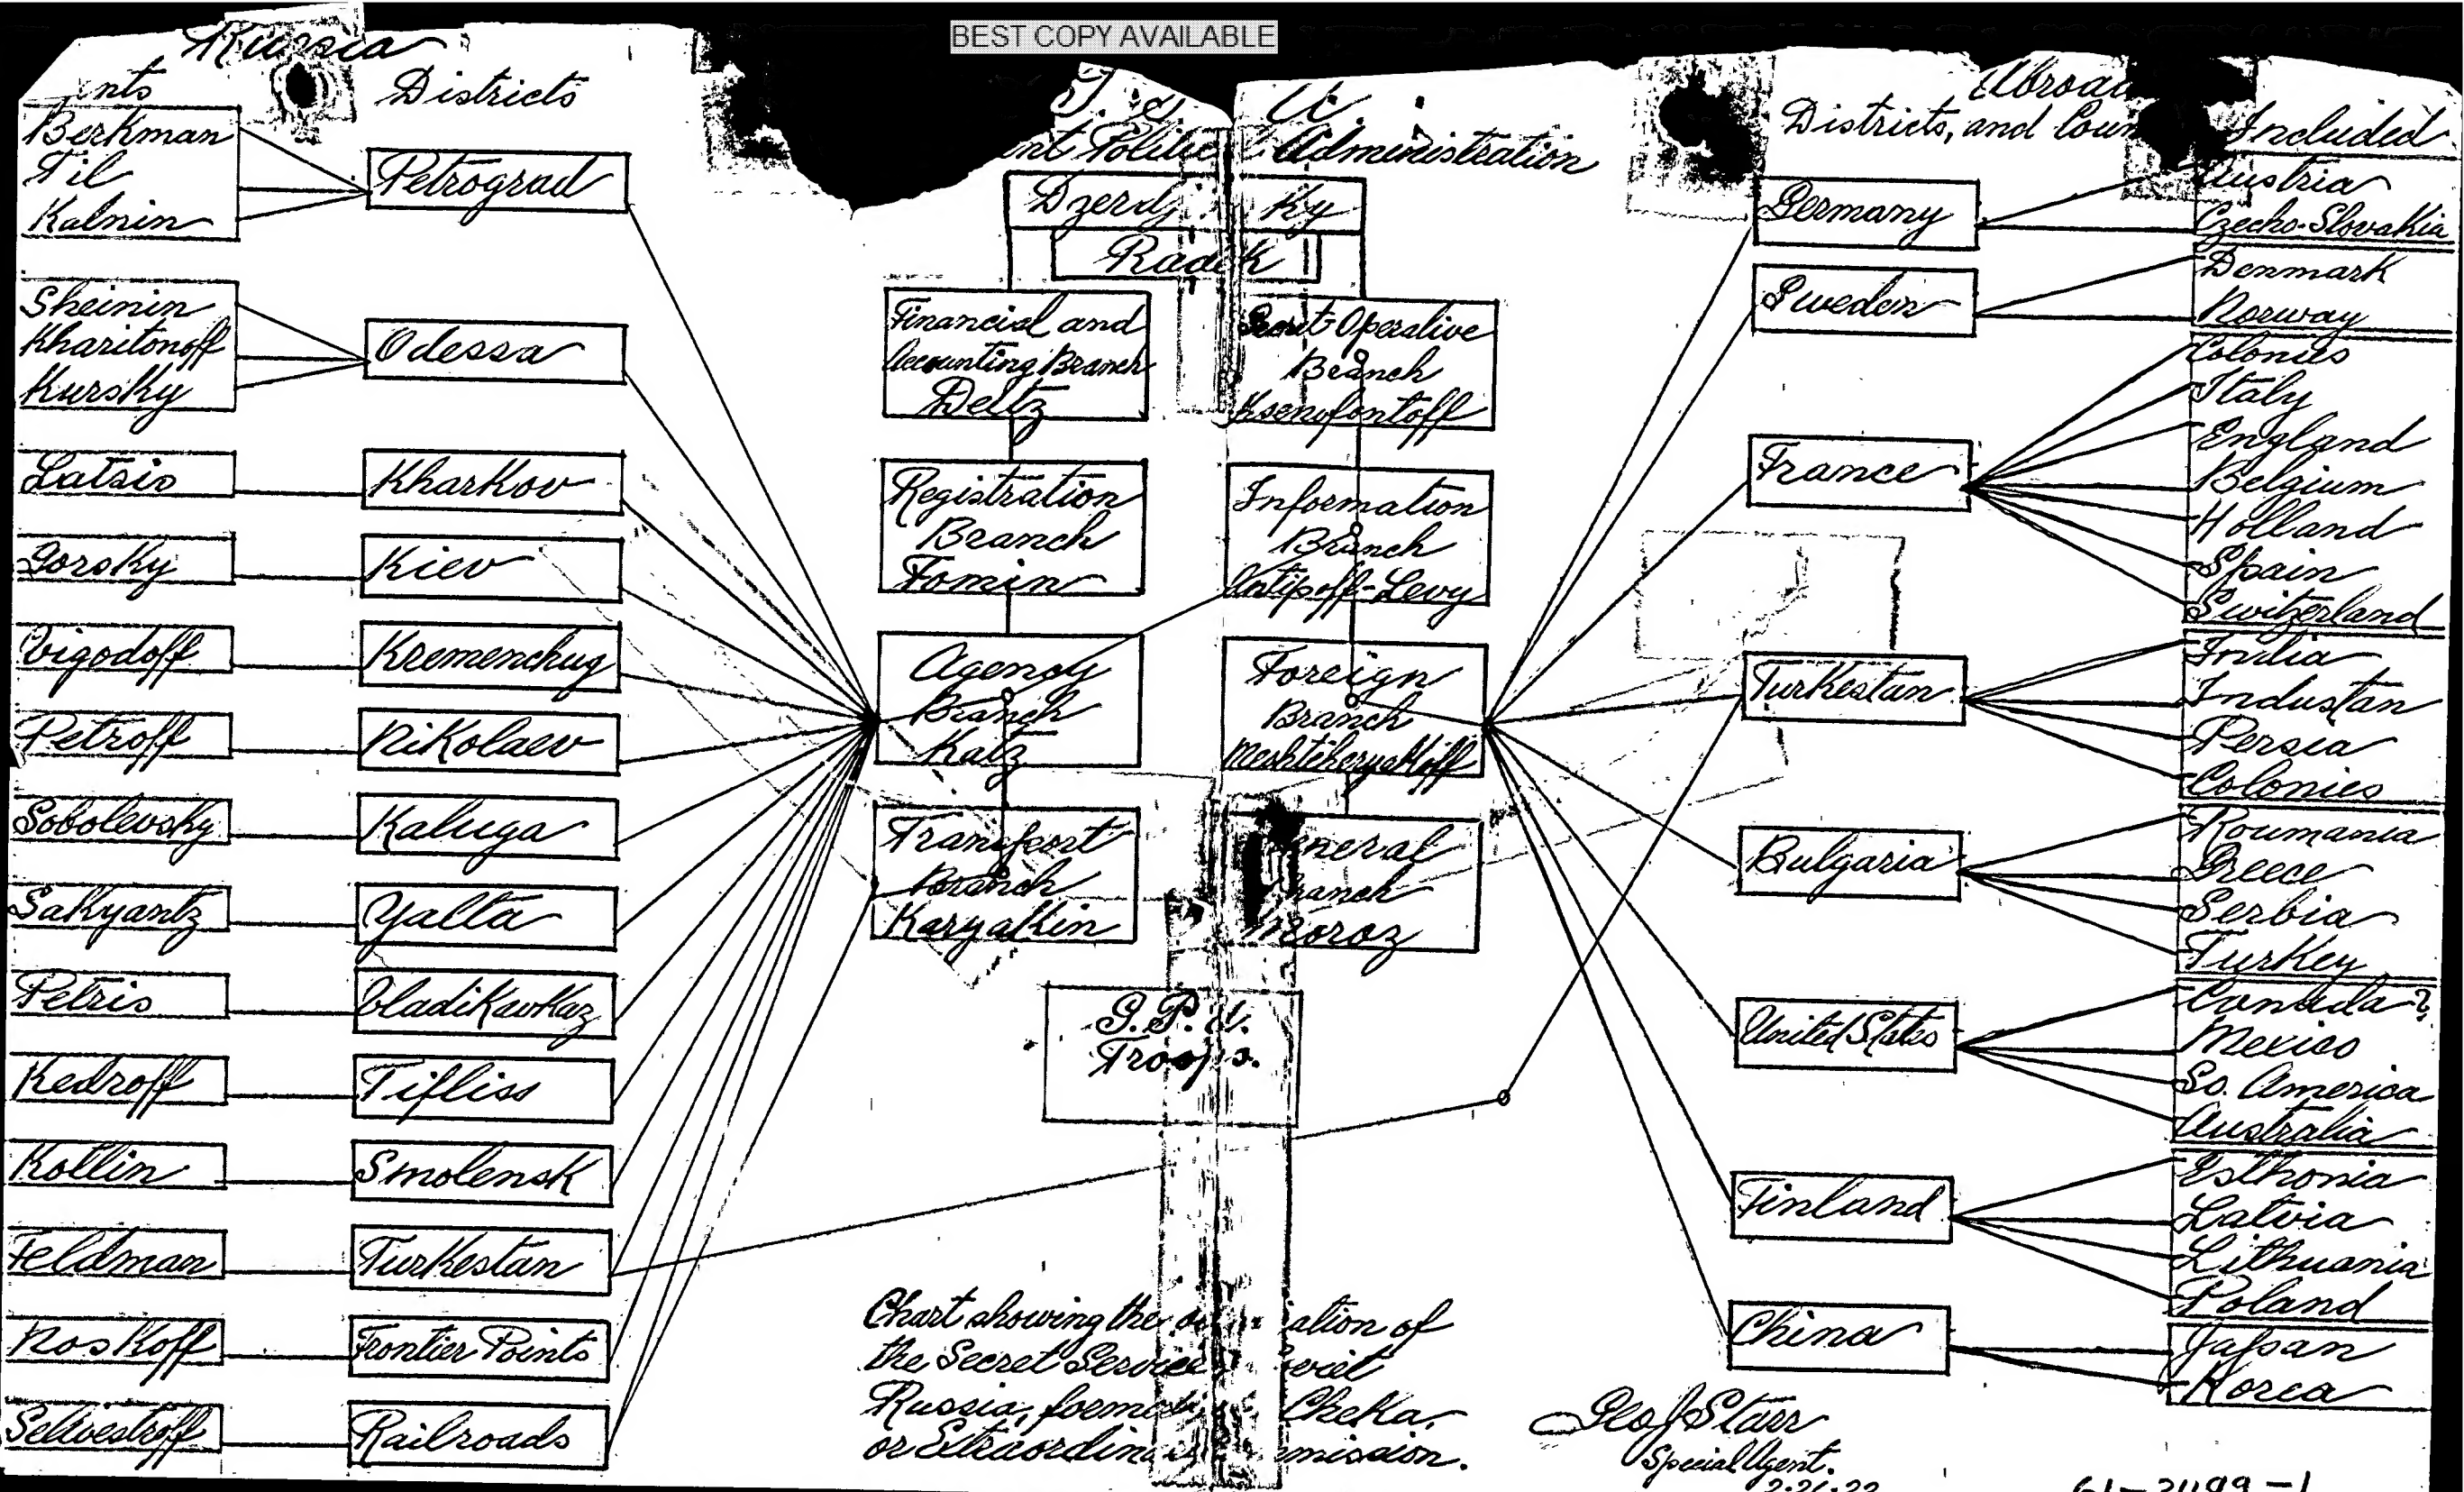 BEST COPY AVAILABLE
Russia
Districts
Berkman
Til
Kalnin
Petrograd
Sheinin
Kharitonoff
Kursky
Odessa
Latsis
Kharkov
Gorsky
Kiev
Vigodoff
Kremenchug
Petroff
Nikolaev
Sobolevsky
Kaluga
Sakyantz
Yalta
Petris
Vladikavkaz
Kedroff
Tifliss
Kotlin
Smolensk
Feldman
Turkestan
Noskoff
Frontier Points
Selivestroff
Railroads
Political Administration
Radek
Financial and
Accounting Branch
Deitz
Secret Operative
Branch
Ksenofontoff
Registration
Branch
Fomin
Information
Branch
Antipoff-Levy
Agency
Branch
Katz
Foreign
Branch
Meshtcheryakoff
Transport
Branch
Karyakin
General
Branch
Moroz
G.P.U.
Troops.
Chart showing the
the Secret Service Soviet
Russia, formerly Cheka,
or Extraordinary Commission.
Geo J Starr
Special Agent.
2-21-22
61-3499-1
Abroad
Districts, and Included
Germany
Austria
Czecho-Slovakia
Sweden
Denmark
Norway
France
Colonies
Italy
England
Belgium
Holland
Spain
Switzerland
Turkestan
India
Industan
Persia
Colonies
Bulgaria
Roumania
Greece
Serbia
Turkey
United States
Canada?
Mexico
So. America
Australia
Finland
Esthonia
Latvia
Lithuania
Poland
China
Japan
Korea